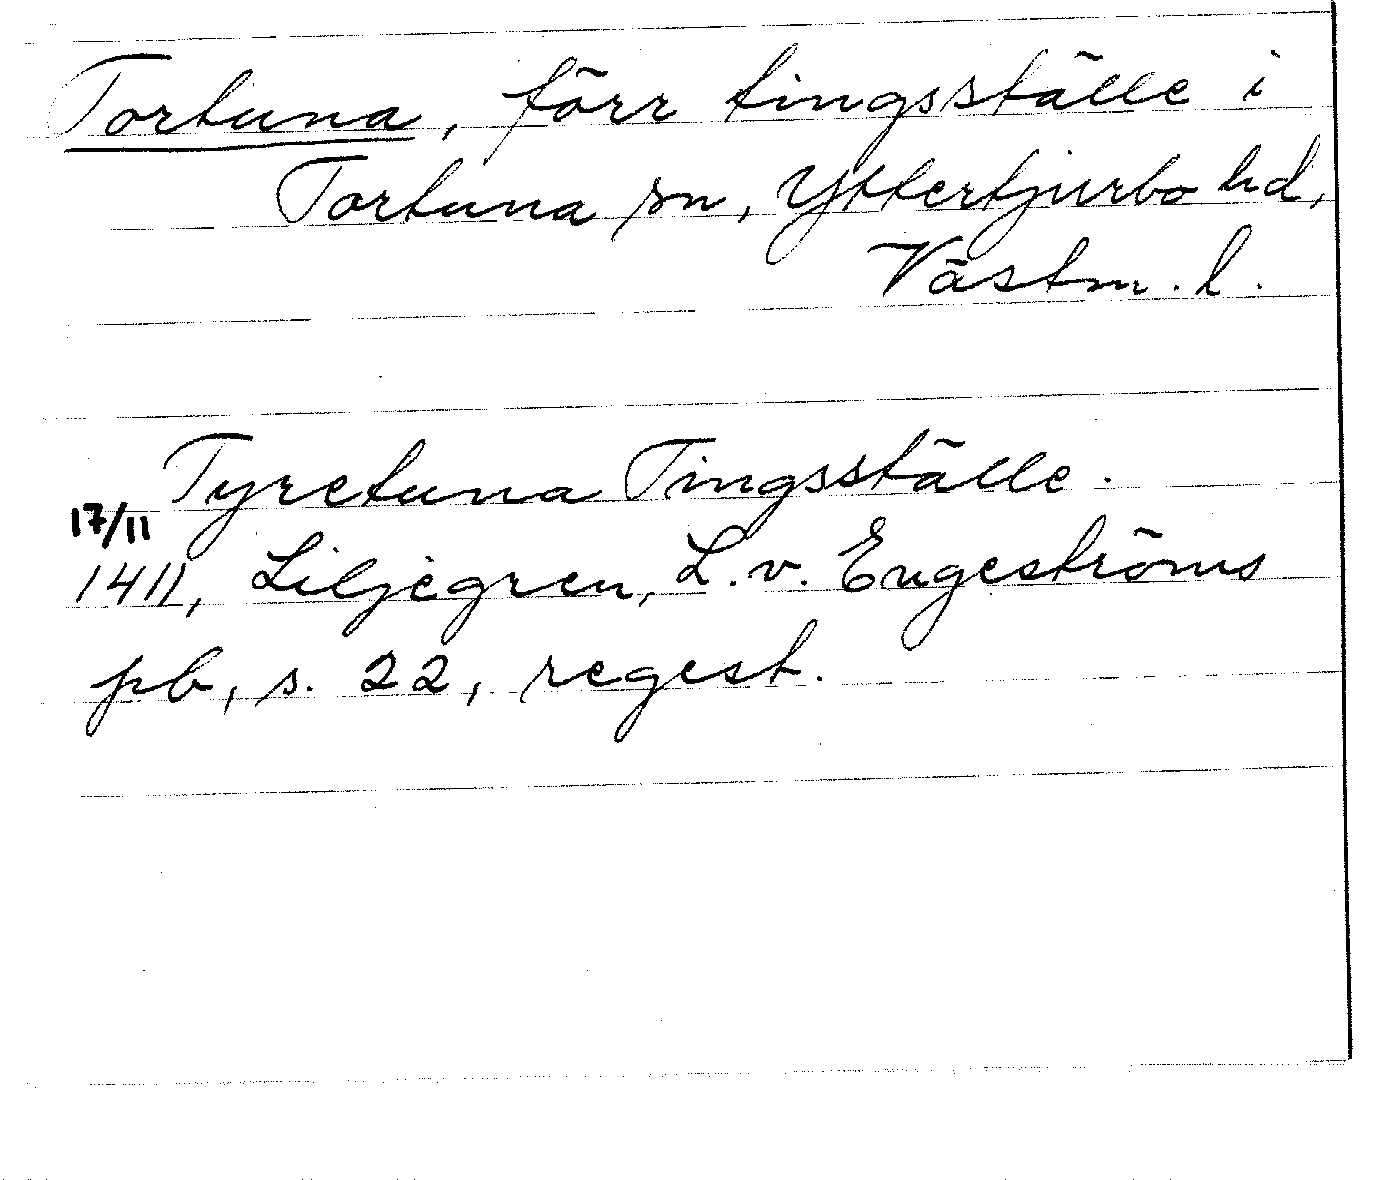 Tortuna, förr tingsställe i
Tortuna sn, Yttertjurbo hd,
Västm. l.
Tyretuna Tingsställe.
17/11
1411, Liljegren, L. v. Engeströms
pb, s. 22, regest.